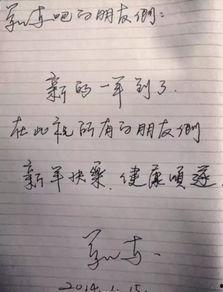 吧的朋友們:
新的一年到了.
在此祝所有的朋友們
新年快樂.健康順遂.
2014.1.15.